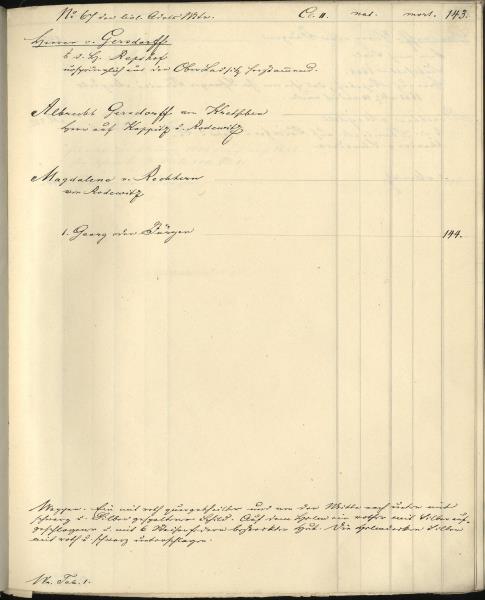 No 67 der livl. Adels Mtr. Cl. II. nat. mort. 143.
Herren v. Gersdorff.
a. d. H. Kopshof
ursprünglich aus der Oberlausitz stammend.
Albrecht Gersdorff an Kretschen
Herr auf Kuppitz u. Rodewitz
Magdalena v. Rechtern
von Rodewitz
1. Georg oder Jürgen 144.
Wappen. Ein mit roth quergetheilter und von der Mitte nach unten mit
schwarz u. Silber gespaltener Schild. Auf dem Helm ein rother mit Silber auf-
geschlagener u. mit 6 Hahnfedern besteckter Hut. Die Helmdecken Silber
mit roth u. schwarz unterschlagen.
St. Tab. 1.